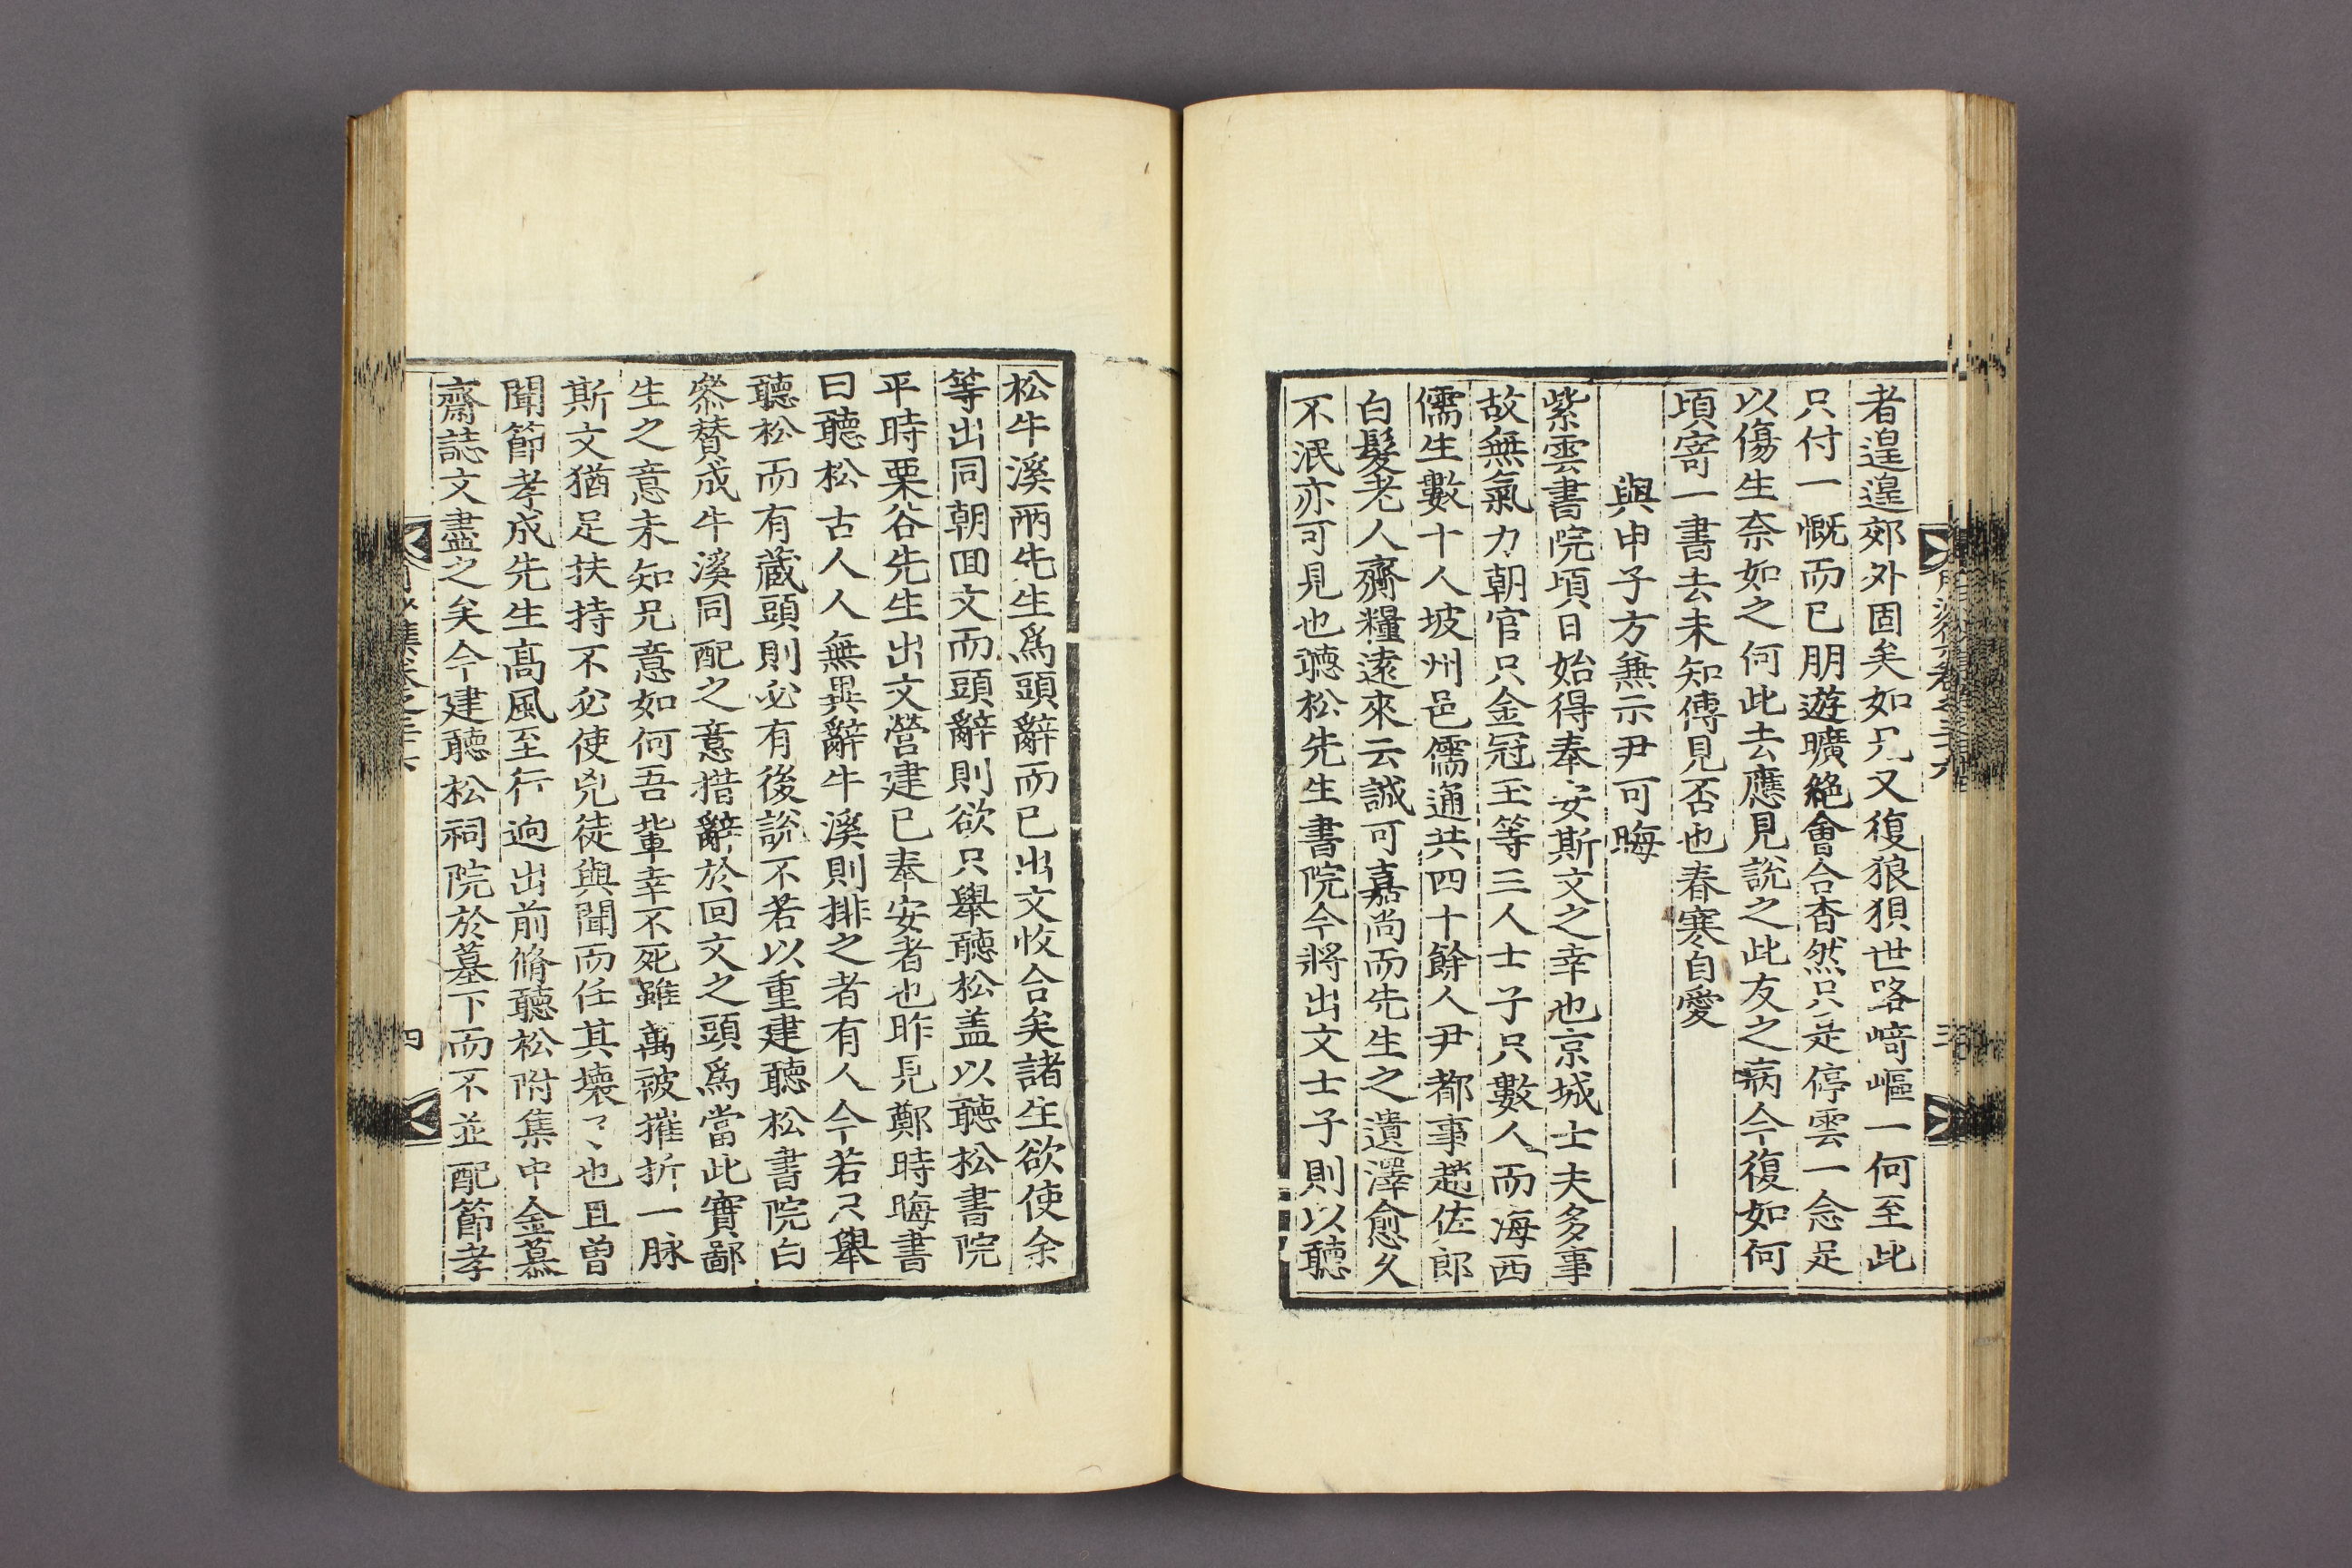 者遑遑郊外固矣如兄又復狼狽世咯﨑嶇一何至此
只付一慨而已朋遊曠絶會合杳然只是停雲一念足
以傷生奈如之何此去應見說之此友之病今復如何
頃寄一書去未知傳見否也春寒自愛
與申子方兼示尹可晦
紫雲書院頃日始得奉安斯文之幸也京城士夫多事
故無氣力朝官只金冠玉等三人士子只數人而海西
儒生數十人坡州邑儒通共四十餘人尹都事趙佐郎
白髮老人齎糧遠來云誠可嘉尚而先生之遺澤愈久
不泯亦可見也聽松先生書院今將出文士子則以聽
松牛溪兩先生爲頭辭而已出文收合矣諸生欲使余
等出同朝回文而頭辭則欲只舉聽松盖以聽松書院
平時栗谷先生出文營建已奉安者也昨見鄭時晦書
曰聽松古人人無異辭牛溪則排之者有人今若只舉
聽松而有藏頭則必有後說不若以重建聽松書院白
叅贊成牛溪同配之意措辭於回文之頭爲當此實鄙
生之意未知兄意如何吾輩幸不死雖萬被摧折一脉
斯文猶足扶持不必使兇徒與聞而任其壊了丶也且曽
聞節孝成先生髙風至行逈出前脩聽松附集中金慕
齋誌文盡之矣今建聽松祠院於墓下而不並配節孝
四